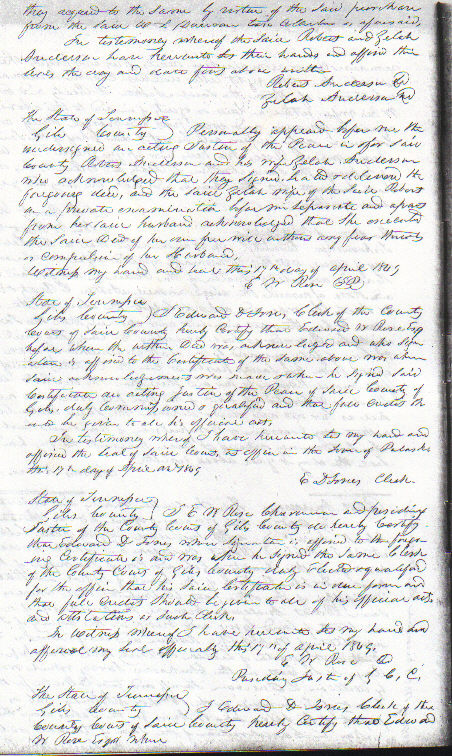 they regard to the same by virtue of the said purchase
from the said W L
In testimony whereof the said Robert and Zelah
Anderson have hereunto set their hands and affixed their
seals the day and date first above written
Robert Anderson
Zelah Anderson
The State of Tennessee
Giles County } Personally appeared before me the
undersigned an acting Justice of the Peace in & for said
County Robert Anderson and his wife Zelah Anderson
who acknowledged that they signed sealed & delivered the
foregoing deed, and the said Zelah wife of the said Robert
on a private examination before me separate and apart
from her said husband acknowledged that she executed
the said deed of her own free will without any fear threats
or Compulsion of her Husband.
Witness my hand and seal this 17th day of April 1869
E W Rose
State of Tennessee
Giles County } I Edward D Jones Clerk of the County
Court of said County hereby Certify that Edward W Rose Esq
before whom the within deed was acknowledged and whose
is affixed to the Certificate of the same above was when
said acknowledgment was made & when he signed said
Certificate an acting Justice of the Peace of said County of
Giles, duly commissioned & qualified and that full credit is
to be given to all his official acts.
In testimony whereof I have hereunto set my hand and
affixed the seal of said Court at office in the Town of Pulaski
this 17th day of April AD 1869
E D Jones Clerk.
State of Tennessee
Giles County } I E W Rose Chairman and presiding
Justice of the County Court of Giles County do hereby Certify
that Edward D Jones whose signature is affixed to the forego
ing Certificate is and was when he signed the same Clerk
of the County Court of Giles County duly elected & qualified
for the office that his said Certificate is in due form and
that full credit should be given to all of his official acts
and as such Clerk.
In Witness whereof I have hereunto set my hand and
affixed my seal officially this 17th of April 1869.
E W Rose
Presiding Just of G C, C,
The State of Tennessee
Giles County } I Edward D Jones Clerk of the
County Court of said County hereby Certify that Edward
W Rose Esqr before